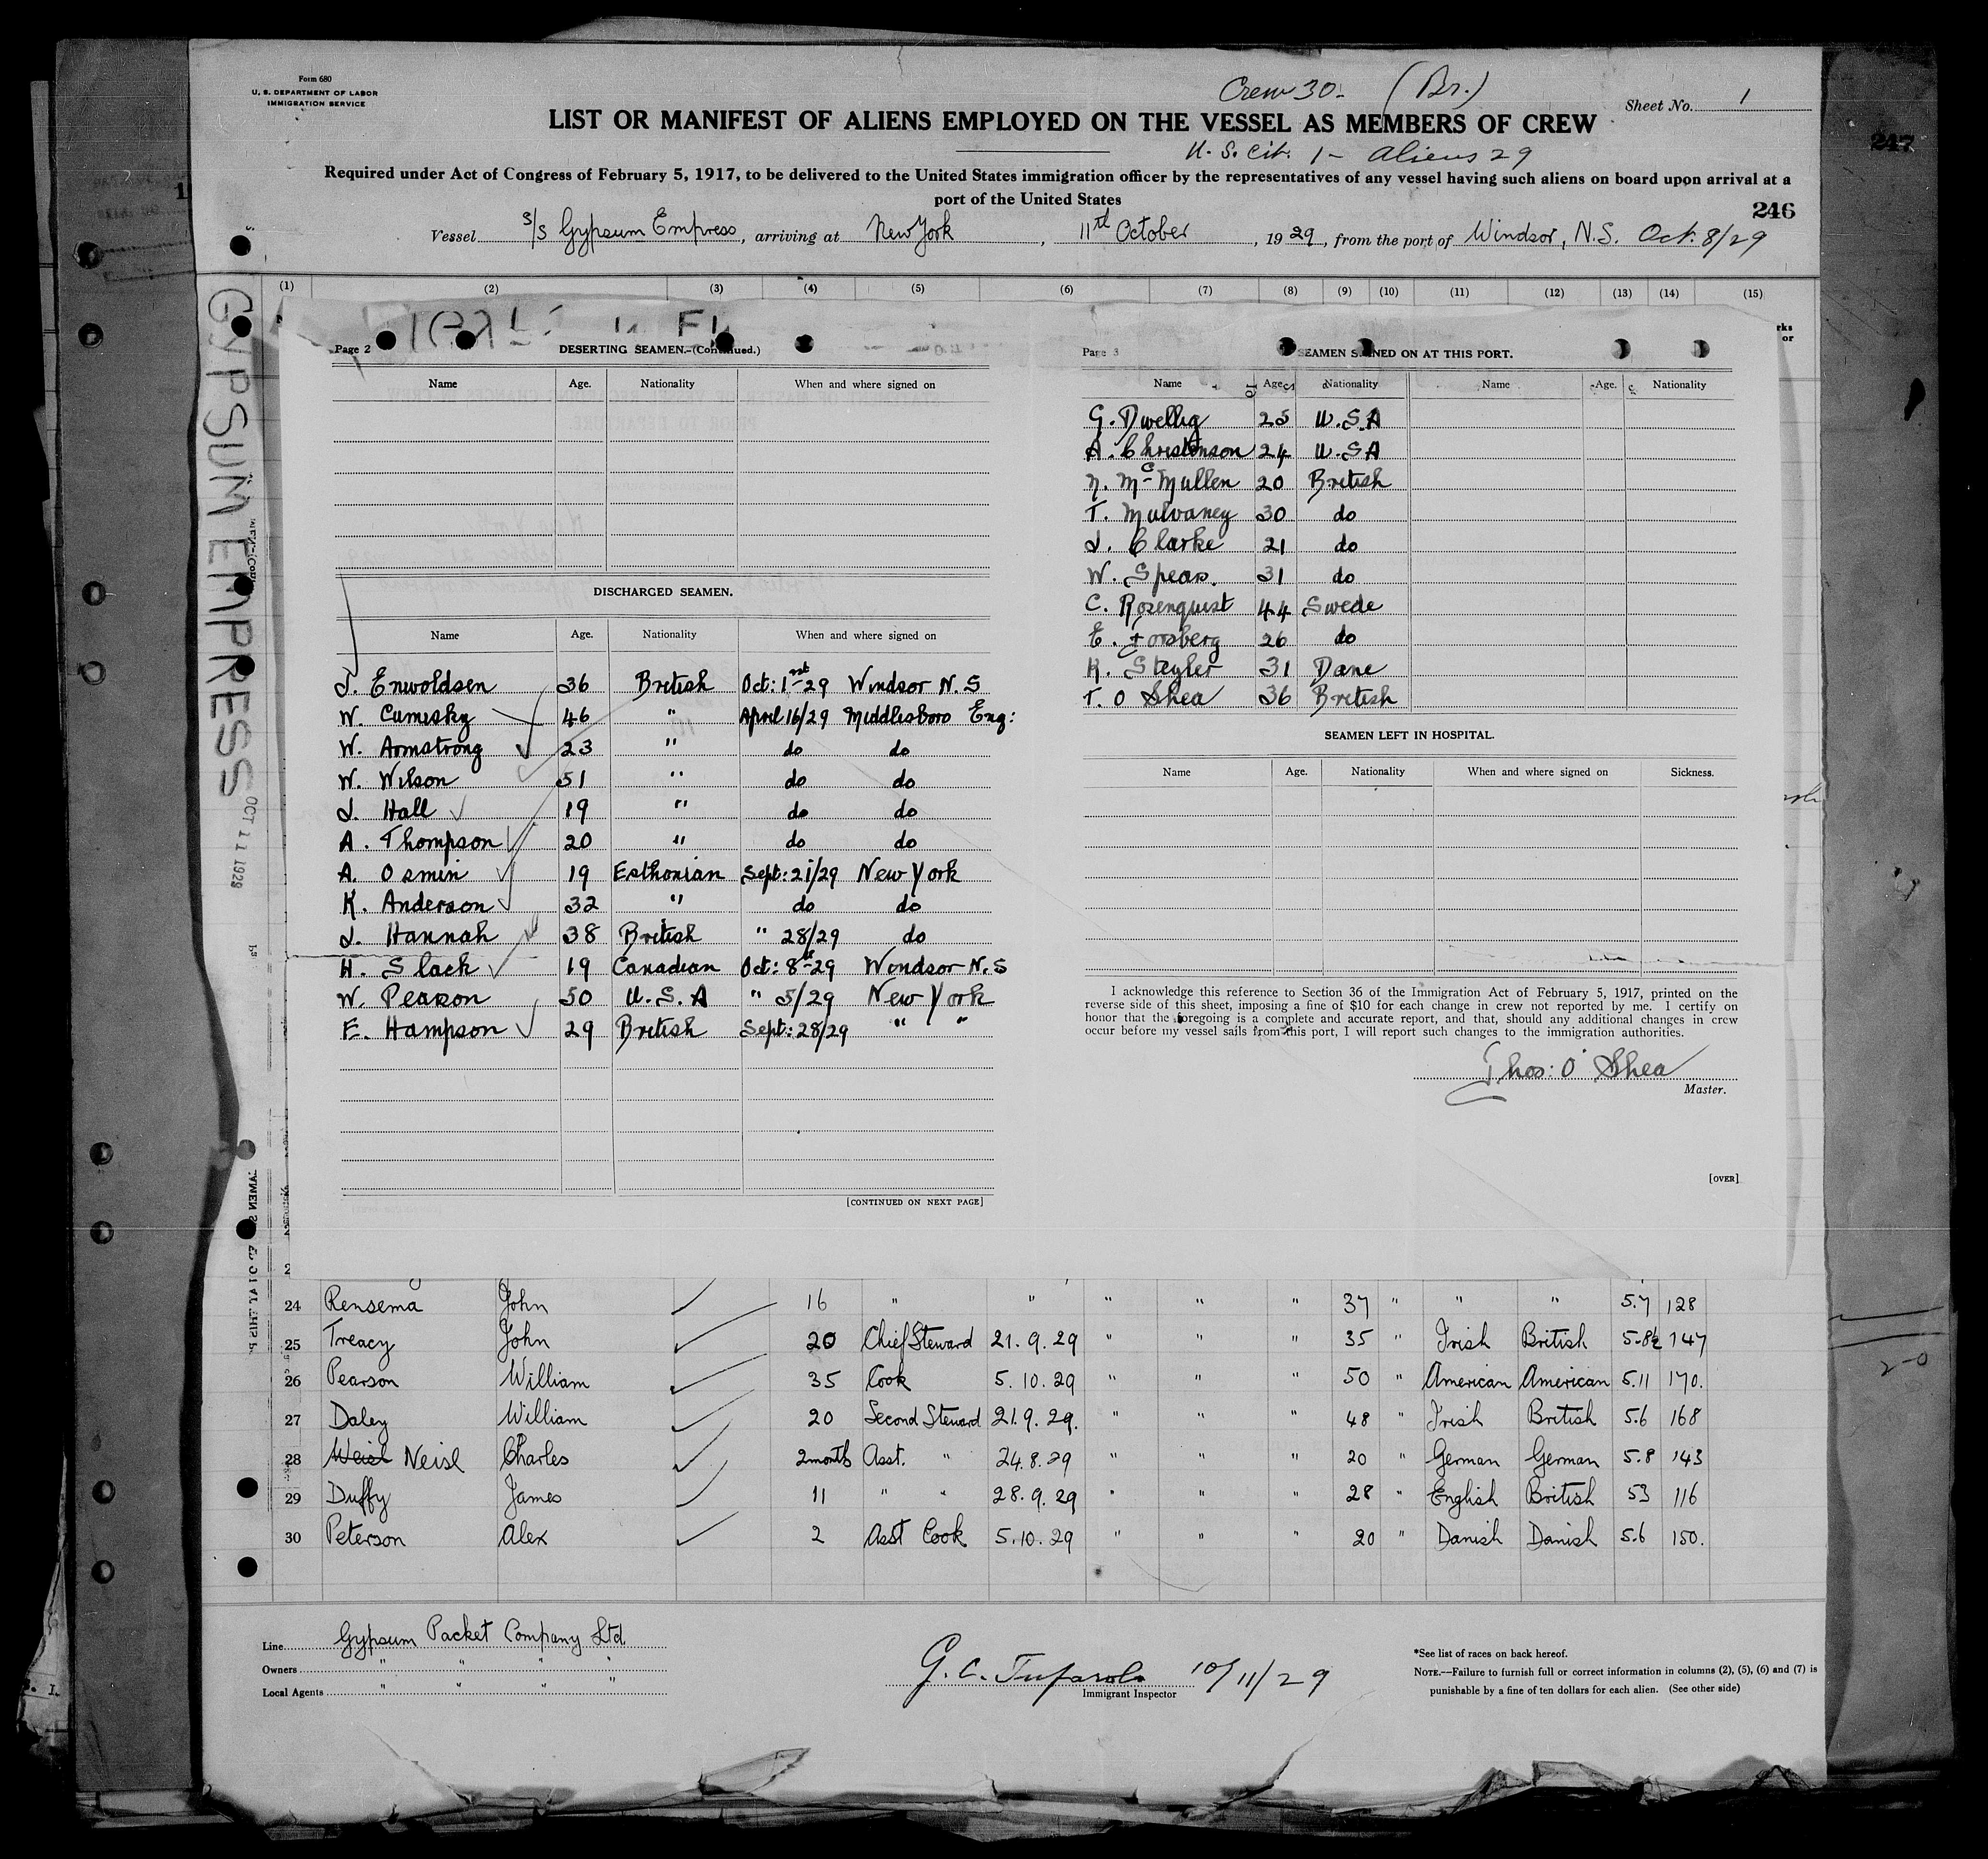 Form 680
U. S. DEPARTMENT OF LABOR
IMMIGRATION SERVICE
Crew 30- (Br.)
Sheet No. 1
LIST OR MANIFEST OF ALIENS EMPLOYED ON THE VESSEL AS MEMBERS OF CREW
U. S. Cit. 1- Aliens 29
Required under Act of Congress of February 5, 1917, to be delivered to the United States immigration officer by the representatives of any vessel having such aliens on board upon arrival at a
port of the United States
247
246
Vessel S/S Gypsum Empress, arriving at New York, 11th October, 1929, from the port of Windsor, N.S. Oct. 8/29
(1) (2) (3) (4) (5) (6) (7) (8) (9) (10) (11) (12) (13) (14) (15)
GYPSUM EMPRESS
OCT 11 1929
Page 2
DESERTING SEAMEN.-(Continued.)
Name Age. Nationality When and where signed on
DISCHARGED SEAMEN.
Name Age. Nationality When and where signed on
J. Enwoldsen 36 British Oct: 1st-29 Windsor N.S
W. Cumisky 46 " April 16/29 Middlesboro Eng:
W. Armstrong 23 " do do
W. Wilson 51 " do do
J. Hall 19 " do do
A. Thompson 20 " do do
A. Osmin 19 Esthonian Sept: 21/29 New York
K. Anderson 32 " do do
J. Hannah 38 British " 28/29 do
H. Slack 19 Canadian Oct: 8th-29 Windsor N.S
W. Pearson 50 U.S.A " 5/29 New York
E. Hampson 29 British Sept: 28/29 " "
[CONTINUED ON NEXT PAGE]
Page 3
SEAMEN SIGNED ON AT THIS PORT.
Name Age. Nationality Name Age. Nationality
G. Dwellig 25 U.S.A
A. Christenson 24 U.SA
N. McMullen 20 British
T. Mulvaney 30 do
J. Clarke 21 do
W. Spears. 31 do
C. Rosenquist 44 Swede
E. Forsberg 26 do
K. Steyler 31 Dane
T. O Shea 36 British
SEAMEN LEFT IN HOSPITAL.
Name Age. Nationality When and where signed on Sickness.
I acknowledge this reference to Section 36 of the Immigration Act of February 5, 1917, printed on the
reverse side of this sheet, imposing a fine of $10 for each change in crew not reported by me. I certify on
honor that the foregoing is a complete and accurate report, and that, should any additional changes in crew
occur before my vessel sails from this port, I will report such changes to the immigration authorities.
Thos: O' Shea
Master.
[OVER]
24 Rensema John 16 " " " " " 37 " " " 5.7 128
25 Treacy John 20 Chief Steward 21.9.29 " " " 35 " Irish British 5-8½ 147
26 Pearson William 35 Cook 5.10.29 " " " 50 " American American 5.11 170.
27 Daley William 20 Second Steward 21.9.29. " " " 48 " Irish British 5.6 168
28 Weisl Neisl Charles 2 months Asst. " 24.8.29 " " " 20 " German German 5.8 143
29 Duffy James 11 " " 28.9.29 " " " 28 " English British 53 116
30 Peterson Alex 2 Asst Cook 5.10.29 " " " 20 " Danish Danish 5.6 150.
Line Gypsum Packet Company Ltd.
Owners " " " "
Local Agents " " " "
G. C. 10/11/29
Immigrant Inspector
*See list of races on back hereof.
NOTE.—Failure to furnish full or correct information in columns (2), (5), (6) and (7) is
punishable by a fine of ten dollars for each alien. (See other side)